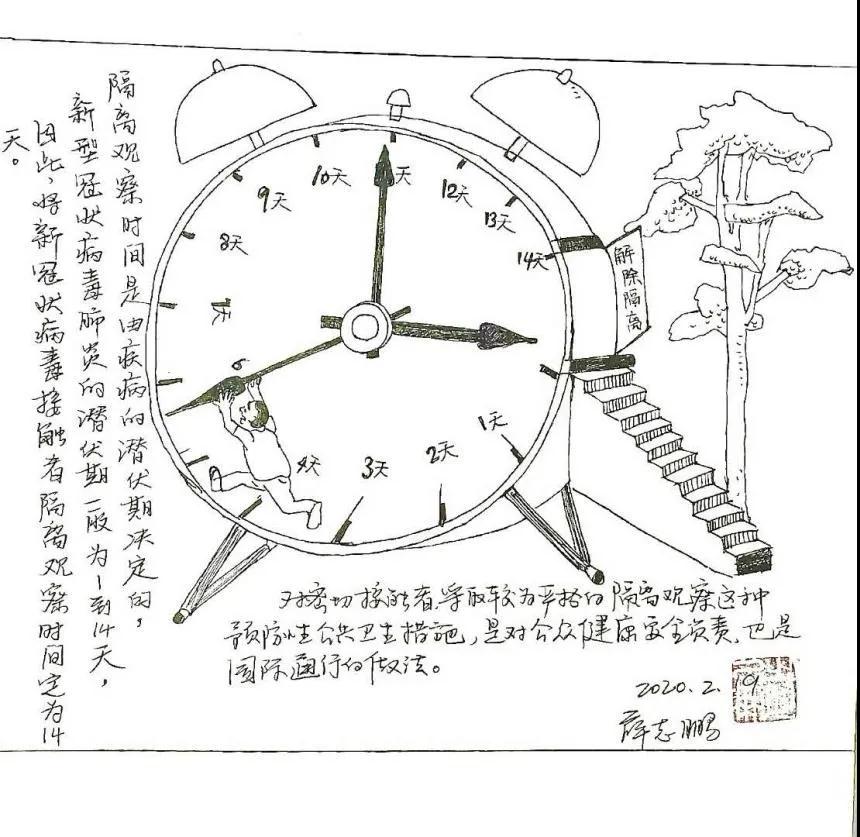 隔离观察时间是由疾病的潜伏期决定的，
新型冠状病毒肺炎的潜伏期一般为1到14天，
因此，将新冠状病毒接触者隔离观察时间定为14
天。
1天
2天
3天
4天
6
7天
8天
9天
10天
天
12天
13天
14天
解除隔离
对密切接触者，采取较为严格的隔离观察这种
预防性公共卫生措施，是对公众健康安全负责，也是
国际通行的做法。
2020.2.19
薛志鹏